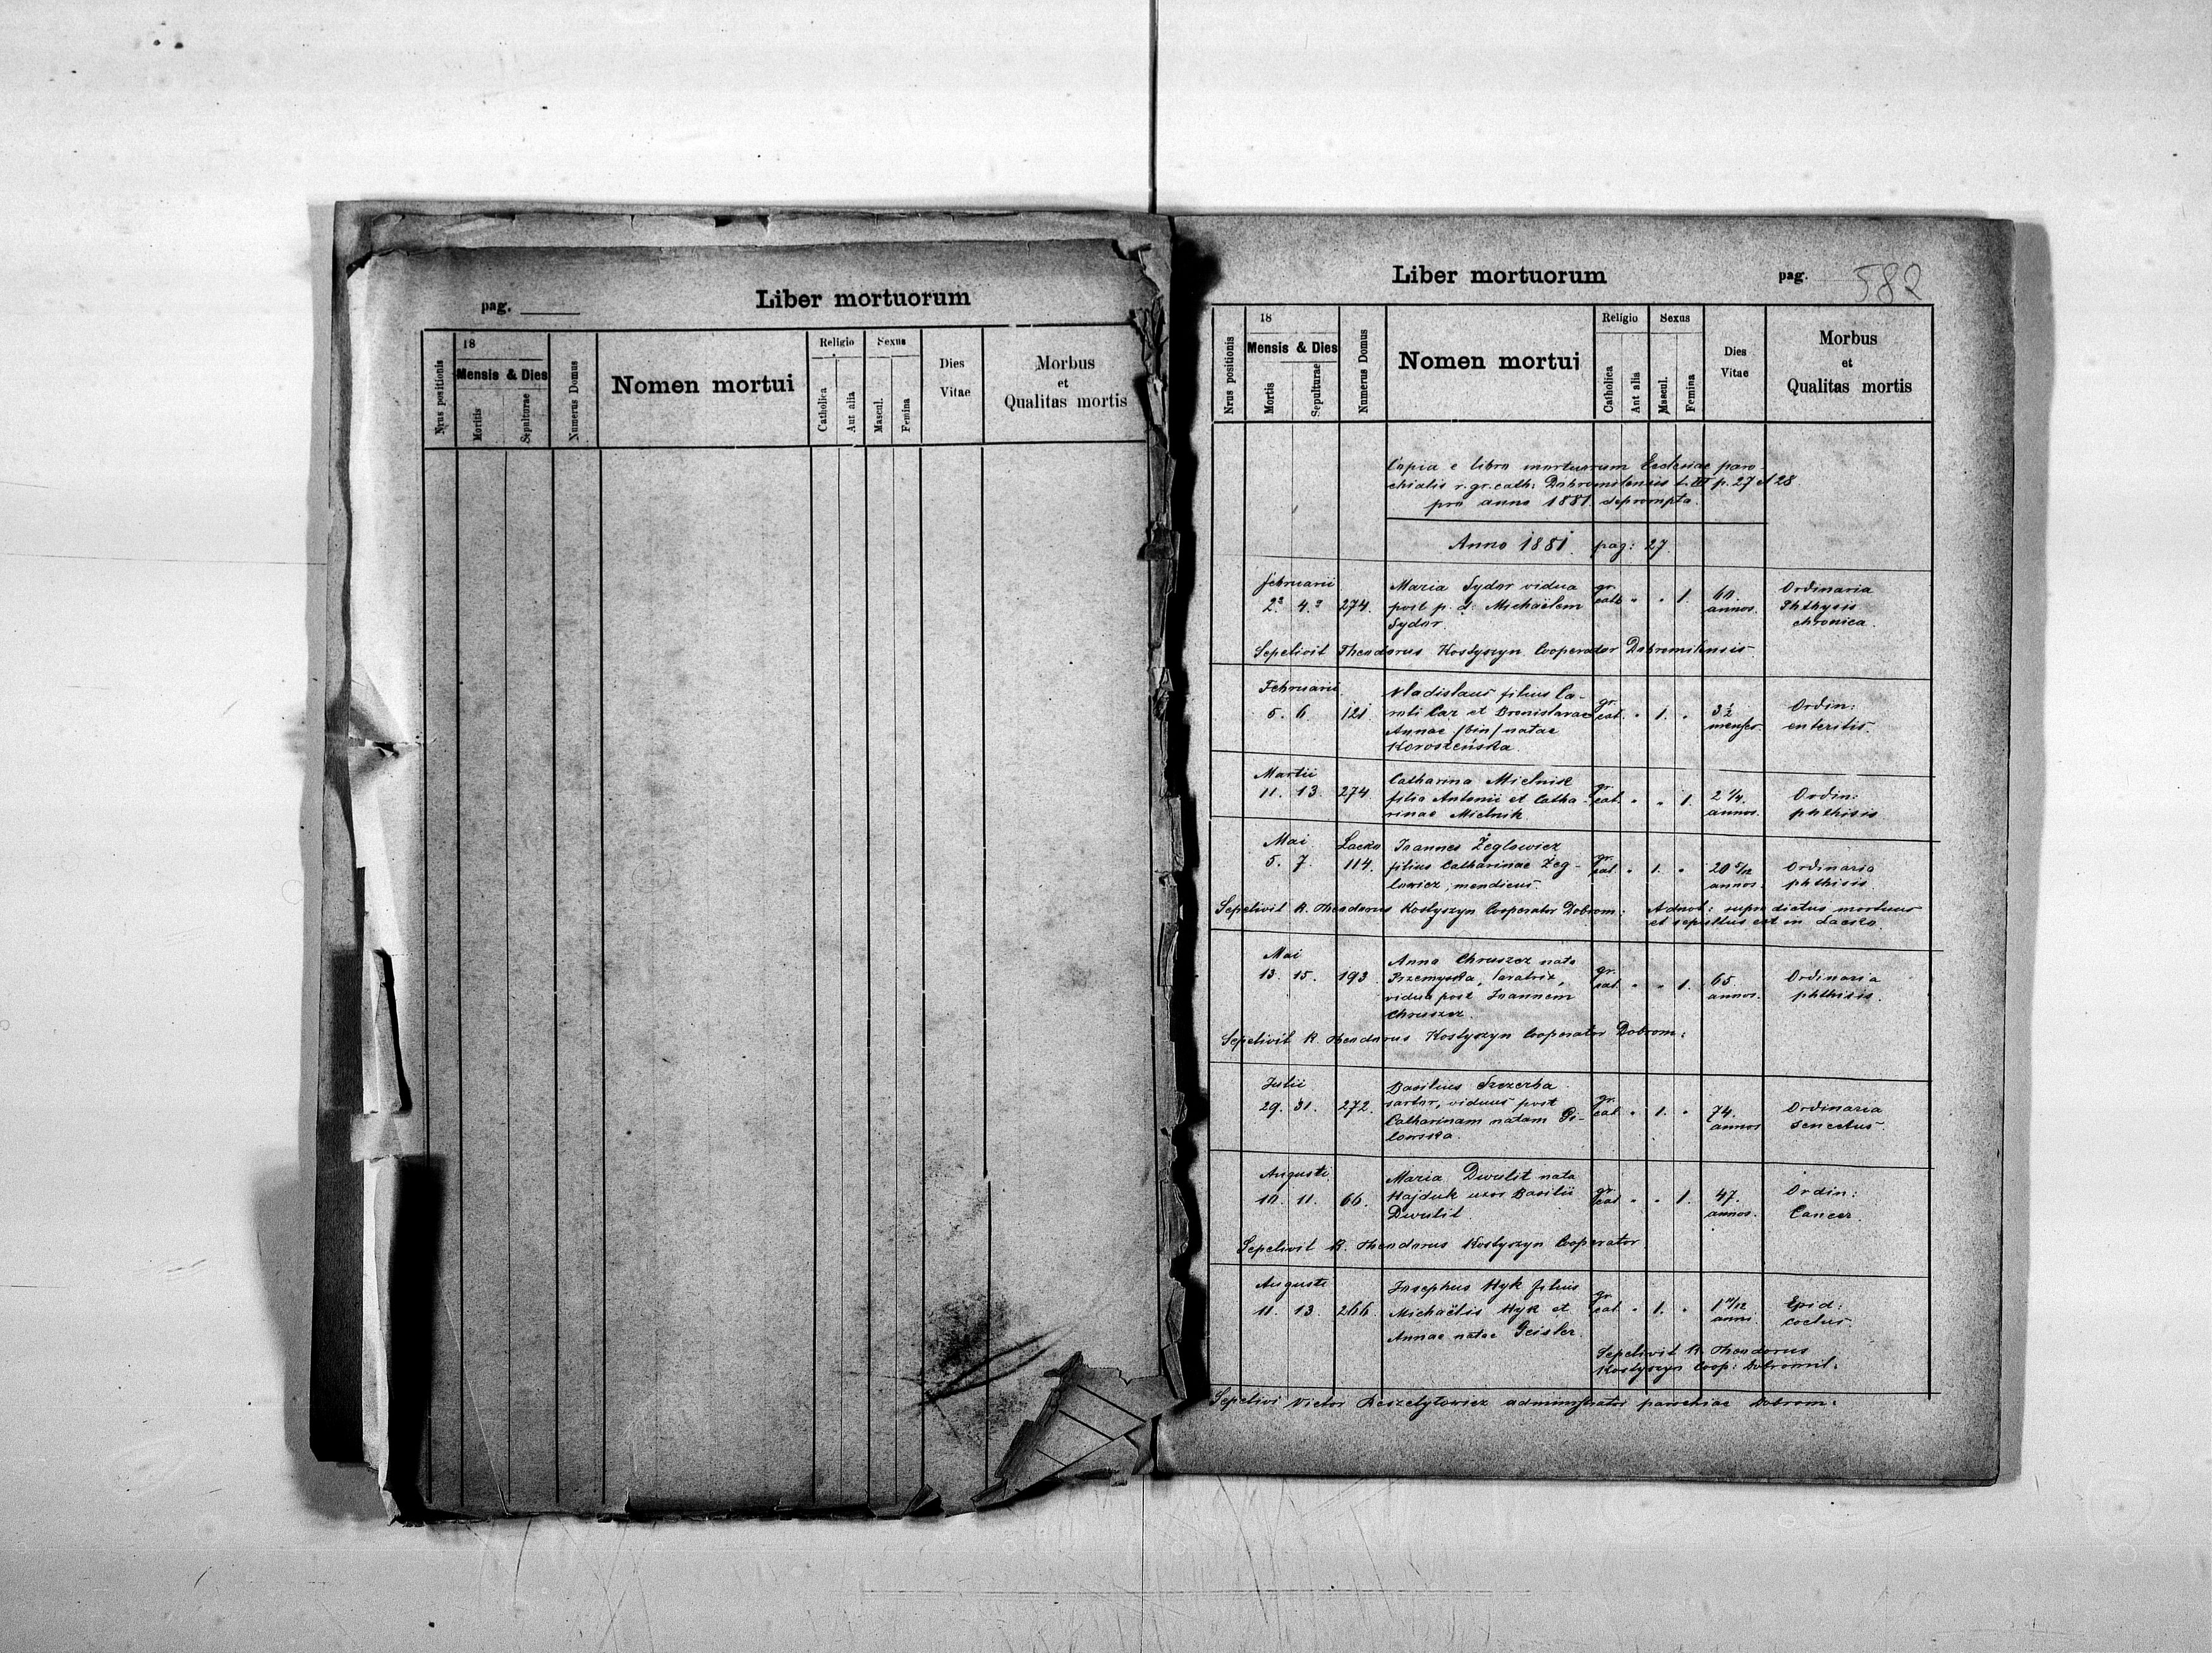 pag.
Liber mortuorum
Nrus positionis
18
Mensis & Dies
Mortis
Sepulturae
Numerus Domus
Nomen mortui
Religio
Catholica
Aut alia
Sexus
Mascul.
Femina
Dies
Vitae
Morbus
et
Qualitas mortis
Liber mortuorum
pag. 582
Nrus positionis
18
Mensis & Dies
Mortis
Sepulturae
Numerus Domus
Nomen mortui
Religio
Catholica
Aut alia
Sexus
Mascul.
Femina
Dies
Vitae
Morbus
et
Qualitas mortis
Copia e libro mortuorum Ecclesiae paro-
chialis r. gr. cath: Dobromilensis t. III p. 27 et 28
pro anno 1881 deprompta.
Anno 1881. pag: 27.
februarii Maria Sydor vidua gr. Ordinaria
2. 4. 274. post p. d: Michaëlem cath " " 1. 60. Phthysis
Sydor. annos. chronica.
Sepelivit Theodorus Kostyszyn Cooperator Dobromilensis
Februarii Vladislaus filius Ca-
5. 6 121 roli Car et Bronislavae gr. cat. " 1. " 3½ Ordin:
Annae /bin/ natae menses enteritis.
Korosteńska.
Martii Catharina Mielnik
11. 13. 274 filia Antonii et Catha- gr. cat. " " 1. 2 1/4. Ordin:
rinae Mielnik annos. phthisis
Mai Lacko Joannes Żeglowicz
5. 7. 114. filius Catharinae Żeg- gr. cat. " 1. " 20 5/12 Ordinaria
lowicz, mendicus. annos. phthisis.
Sepelivit R. Theodorus Kostyszyn Cooperator Dobrom: Adnot: supra dictus mortuus
et sepultus est in Lacko.
Mai Anna Chruszcz nata
13. 15. 193 Przemyska, vidua post Joannem gr. cat. " " 1. 65 Ordinaria
Chruszcz. annos. phthisis.
Sepelivit R. Theodorus Kostyszyn Cooperator Dobrom:
Julii Basilius Szczerba
29. 31. 272. sartor, viduus post gr. cat. " 1. " 74. Ordinaria
Catharinam natam annos senectus.
Augusti Maria Dwulit nata
10. 11. 66. Hajduk uxor Basilii gr. cat " " 1. 47. Ordin:
Dwulit annos. Cancer.
Sepelivit R. Theodorus Kostyszyn Cooperator
Augusti Josephus Hyk filius
11. 13. 266. Michaëlis Hyk et gr. cat. " 1. " Epid:
Annae natae Geisler. anni
Sepelivit R. Theodorus
Kostyszyn Coop: Dobromil.
Sepelivi Victor administrator parochiae Dobrom: